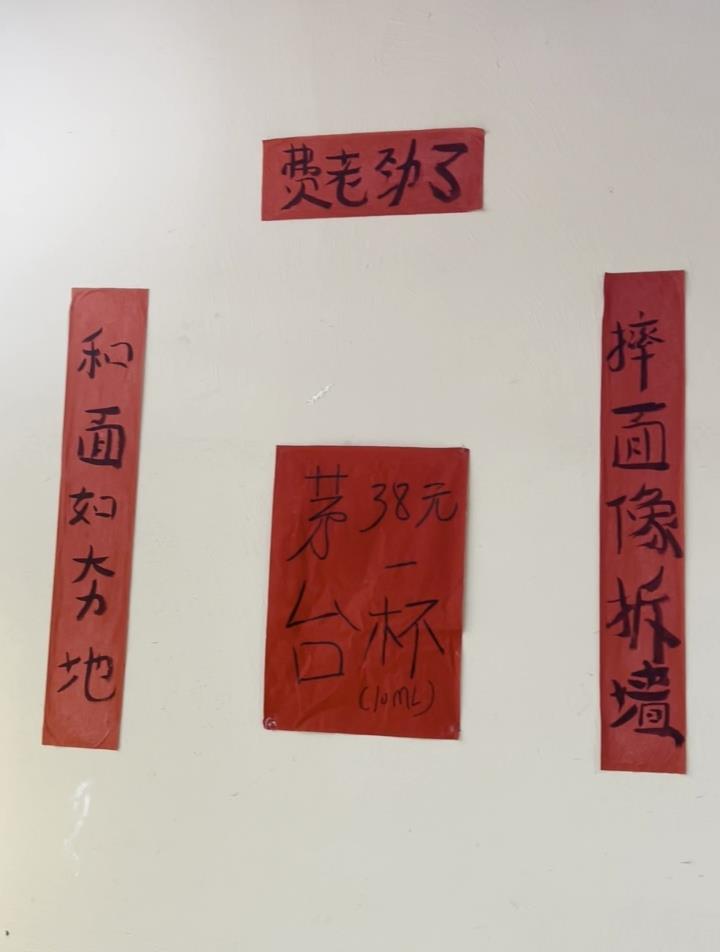 费老劲了
和面如夯地
茅台
38元
一杯
(10ML)
摔面像拆墙